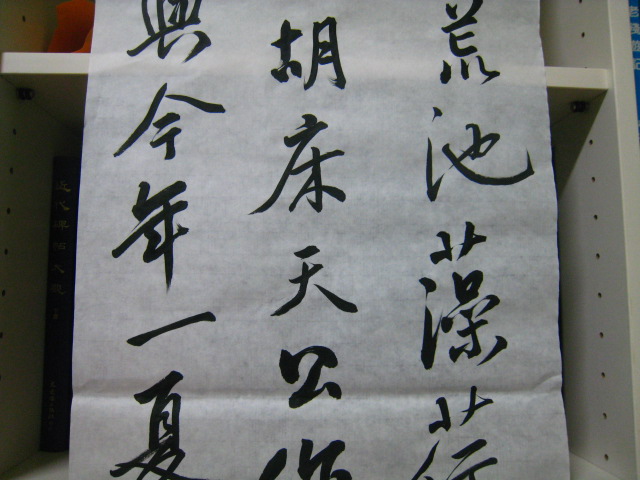 荒池藻荇
胡床天公作
與今年一夏